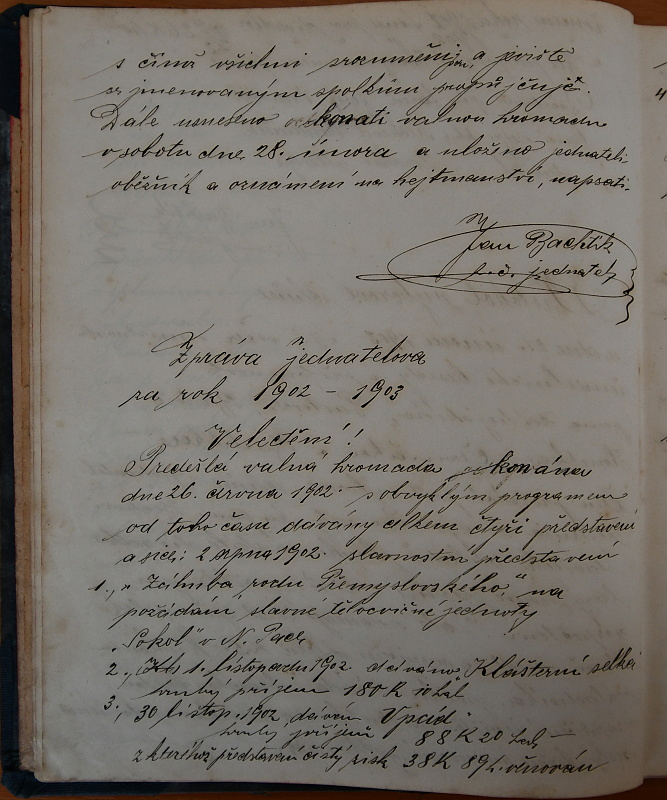 s čímž všichni srozuměni jsou, a jeviště
se jmenovaným spolkům propůjčuje.
Dále usneseno konati valnou hromadu
v sobotu dne 28. února a uloženo jednateli
oběžník a oznámení na hejtmanství, napsati.
Jan Bachtík
t.č. jednatel
Zpráva jednatelova
za rok 1902 – 1903
Velectění!
Předešlá valná hromada konána
dne 26. června 1902. – s obvyklým programem
od toho času dávány celkem čtyři představení
a sice: 2 srpna 1902. slavnostní představení
1., „Záhuba rodu Přemyslovského," na
požádání slavné tělocvičné jednoty
„Sokol" v N. Pace,
2., 1. listopadu 1902 dáváno Klášterní
hrubý příjem 180 K 10 hal
3., 30 listop. 1902, dáván Vpád
hrubý příjem 88 K 20 hal, –
z kteréhož představení čistý zisk 38 K 89 h. věnován